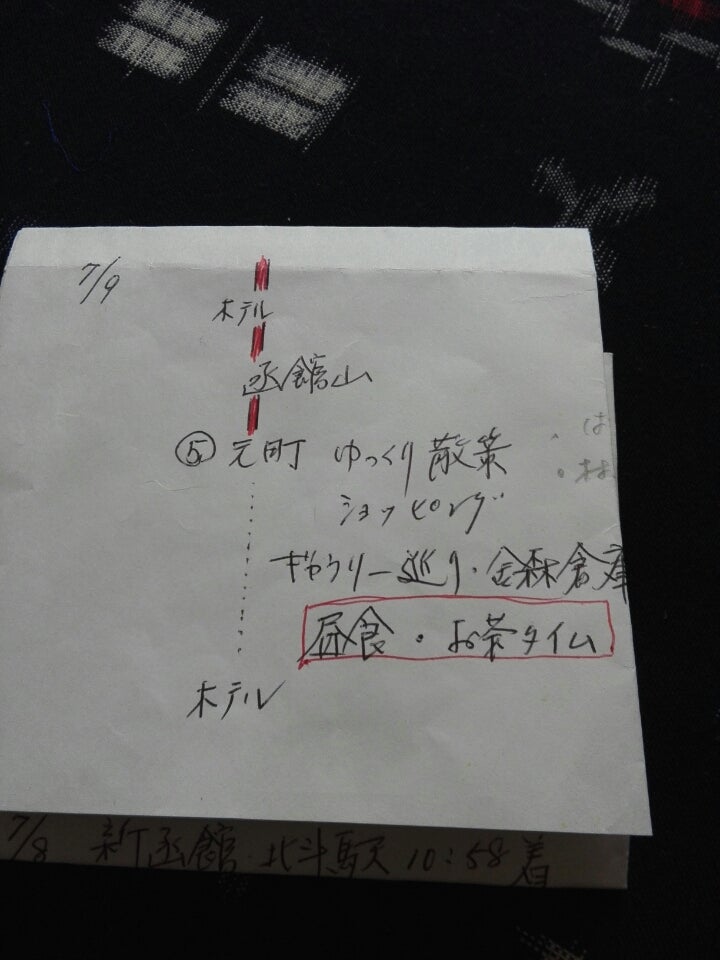 7/9
ホテル
函館山
⑤ 元町 ゆっくり散策
ショッピング
ギャラリー巡り・金森倉庫
昼食・お茶タイム
ホテル
7/8 新函館・北斗駅 10:58着